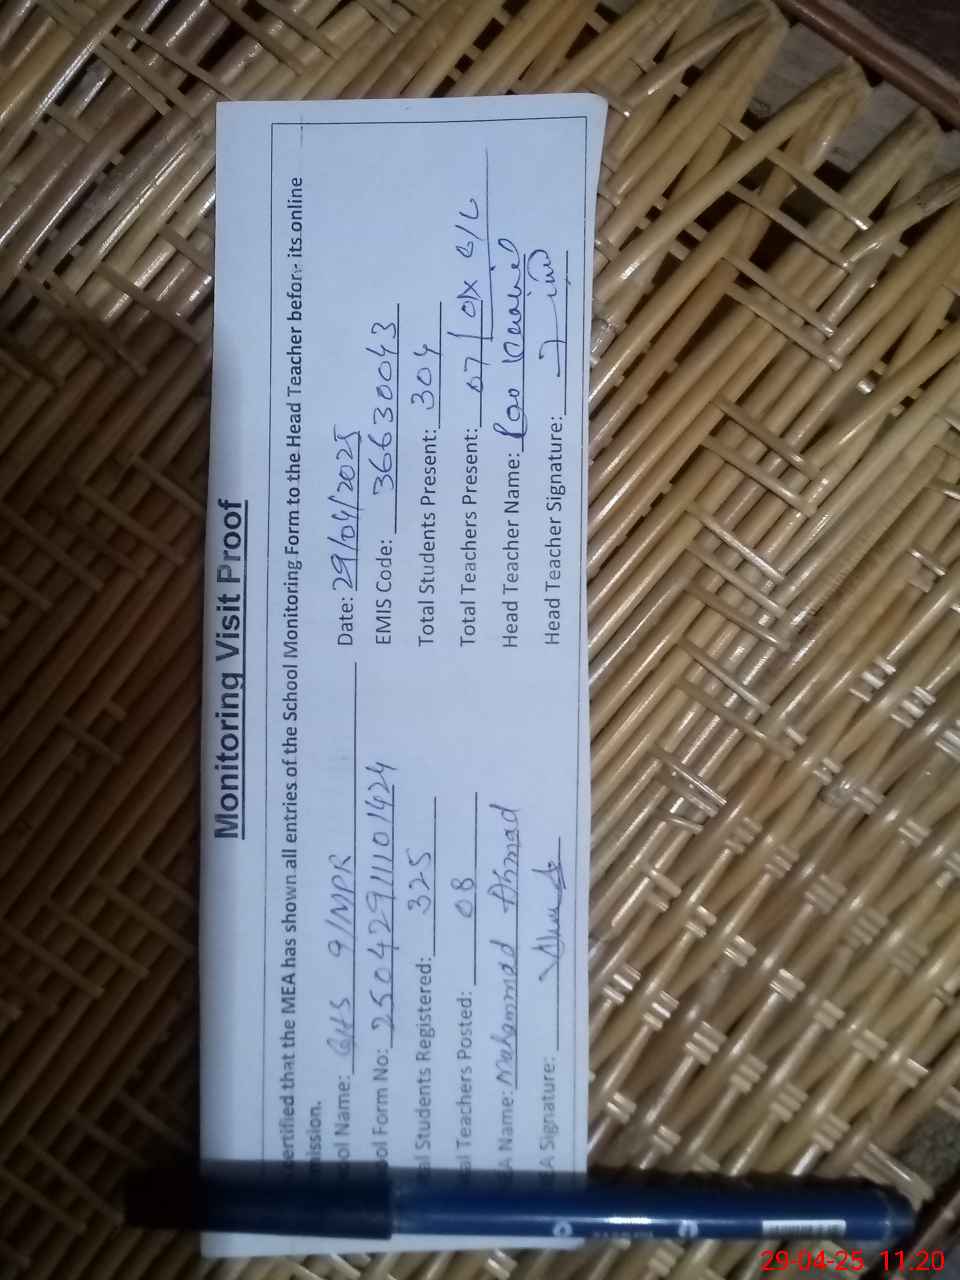 Monitoring Visit Proof
certified that the MEA has shown all entries of the School Monitoring Form to the Head Teacher before its online
mission.
ool Name: GHS 9/MPR Date: 29/04/2025
ool Form No: 25042911101424 EMIS Code: 36630043
al Students Registered: 325 Total Students Present: 304
al Teachers Posted: 08 Total Teachers Present: 07 01x C/L
EA Name: Muhammad Ahmad Head Teacher Name: Rao
EA Signature: Head Teacher Signature:
29-04-25 11:20